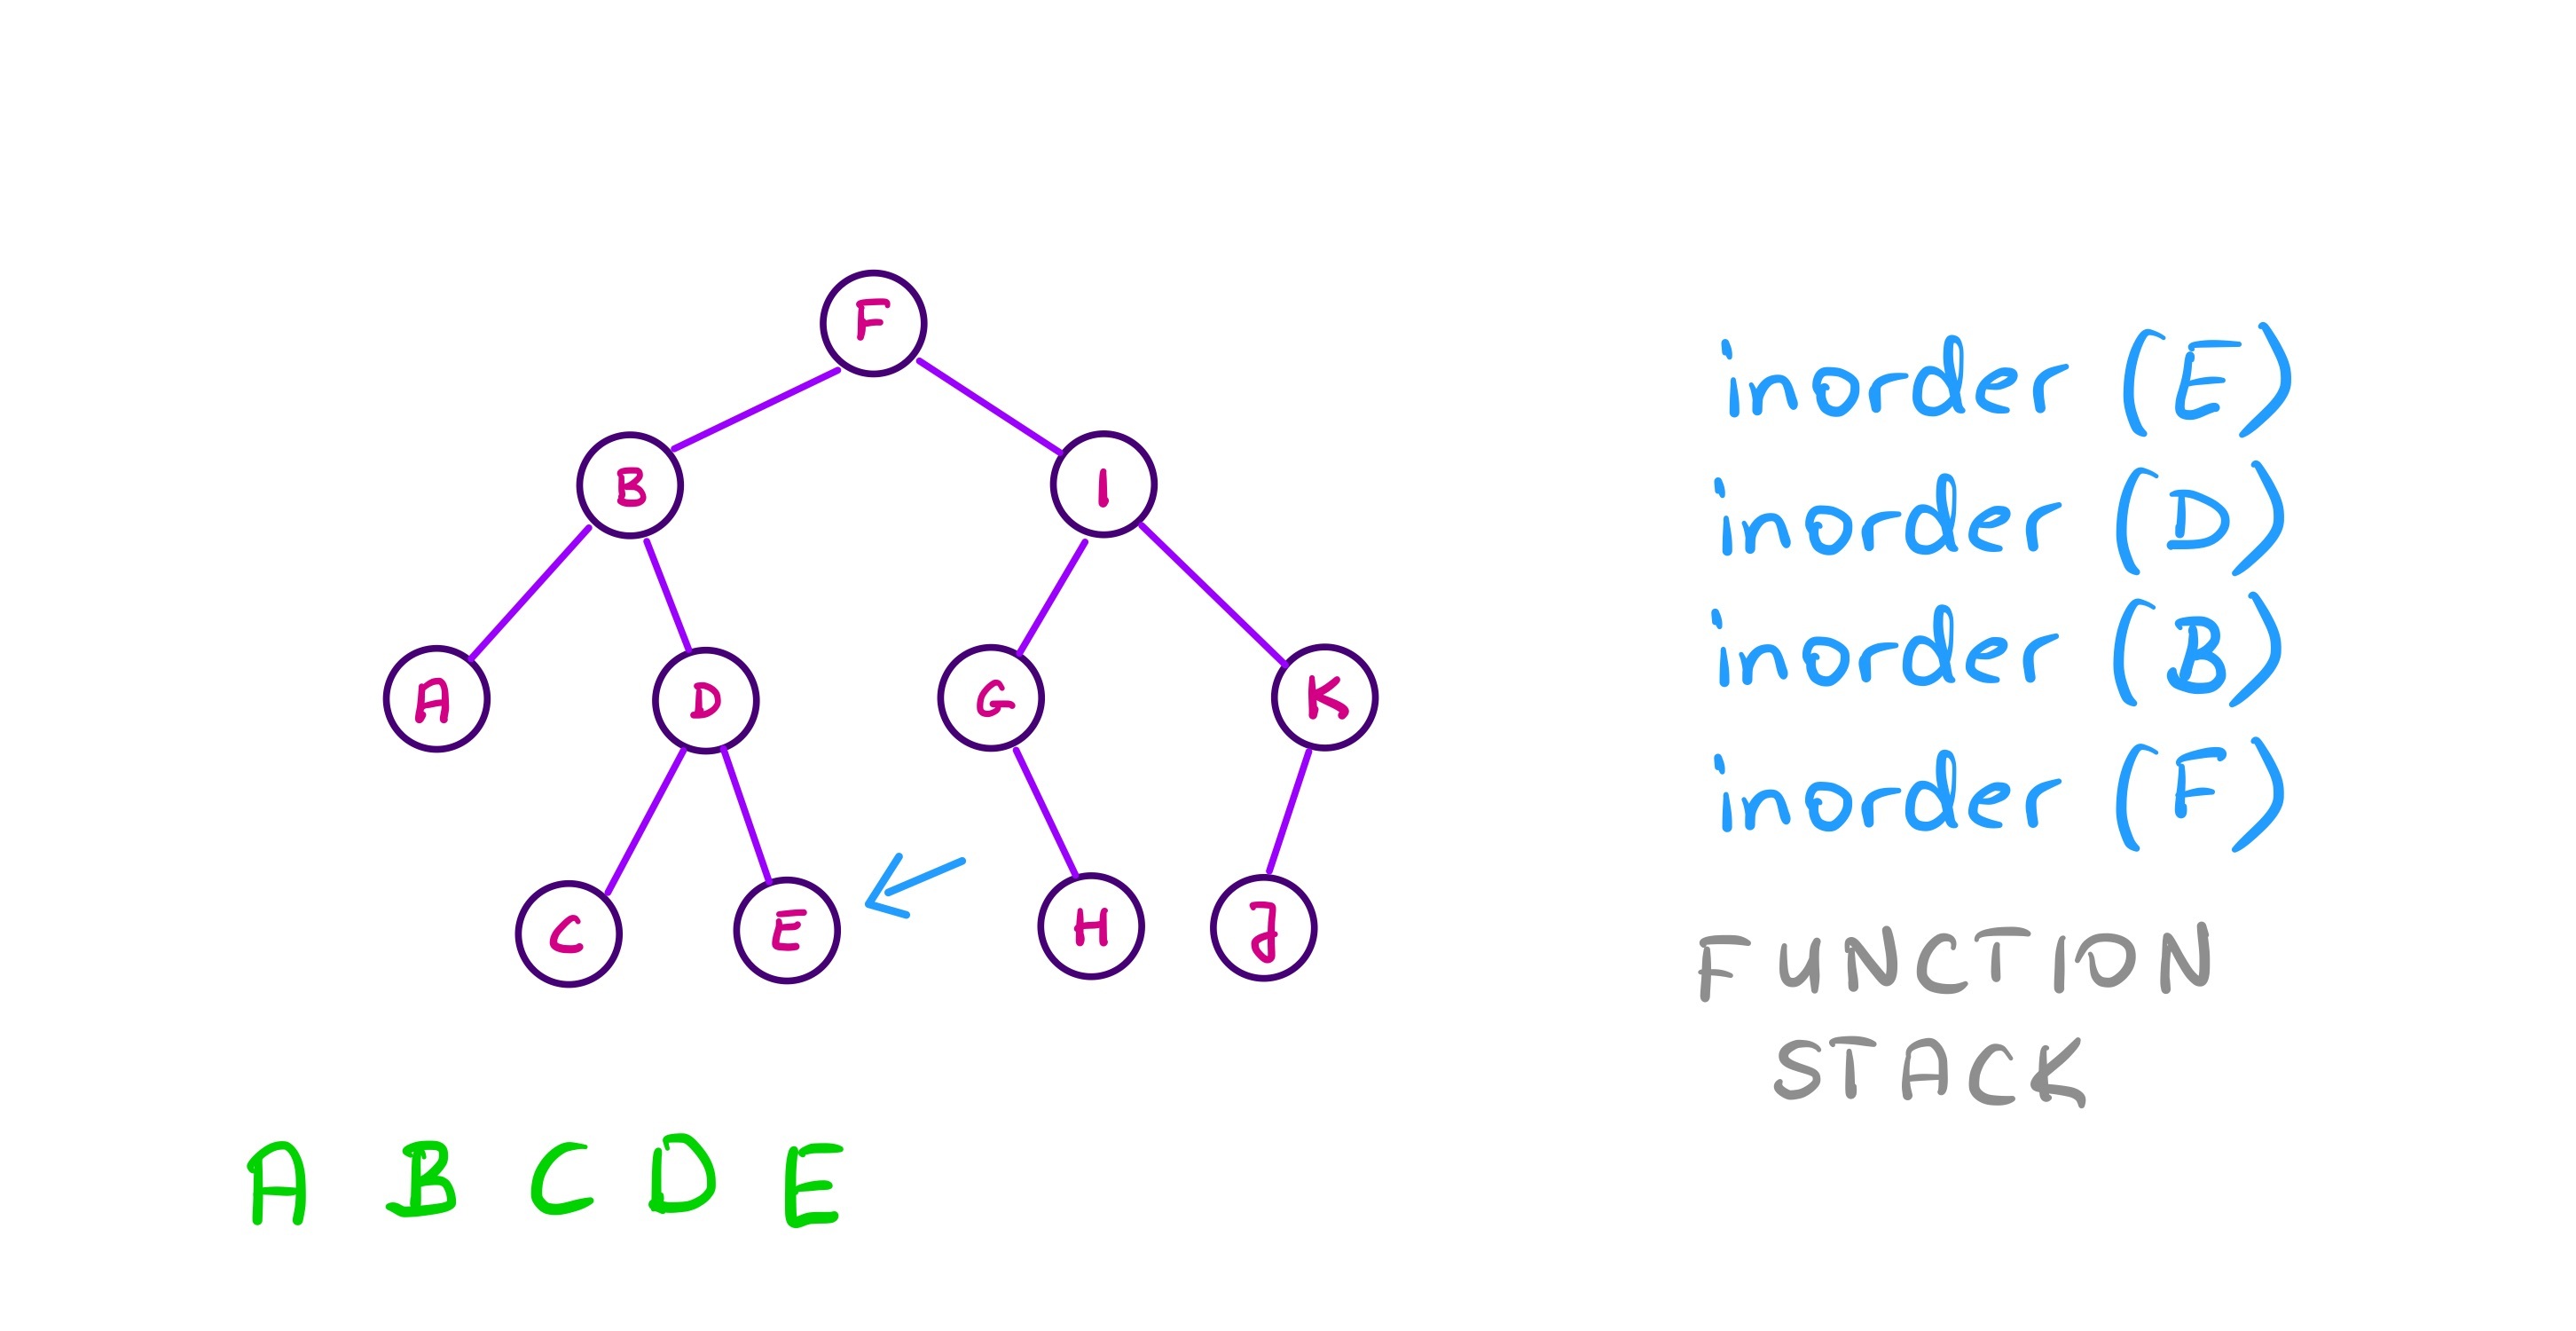 F
B I
A D G K
C E H J
inorder (E)
inorder (D)
inorder (B)
inorder (F)
FUNCTION
STACK
A B C D E